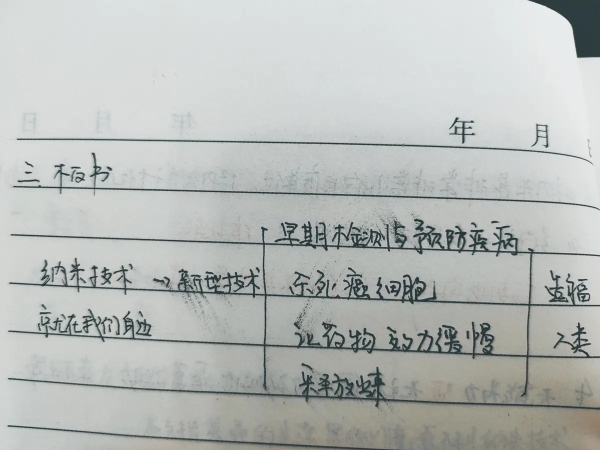 年 月
三 板书
早期检测与预防疾病
纳米技术 → 新型技术 杀死癌细胞 造福
就在我们身边 让药物效力缓慢 人类
释放出来